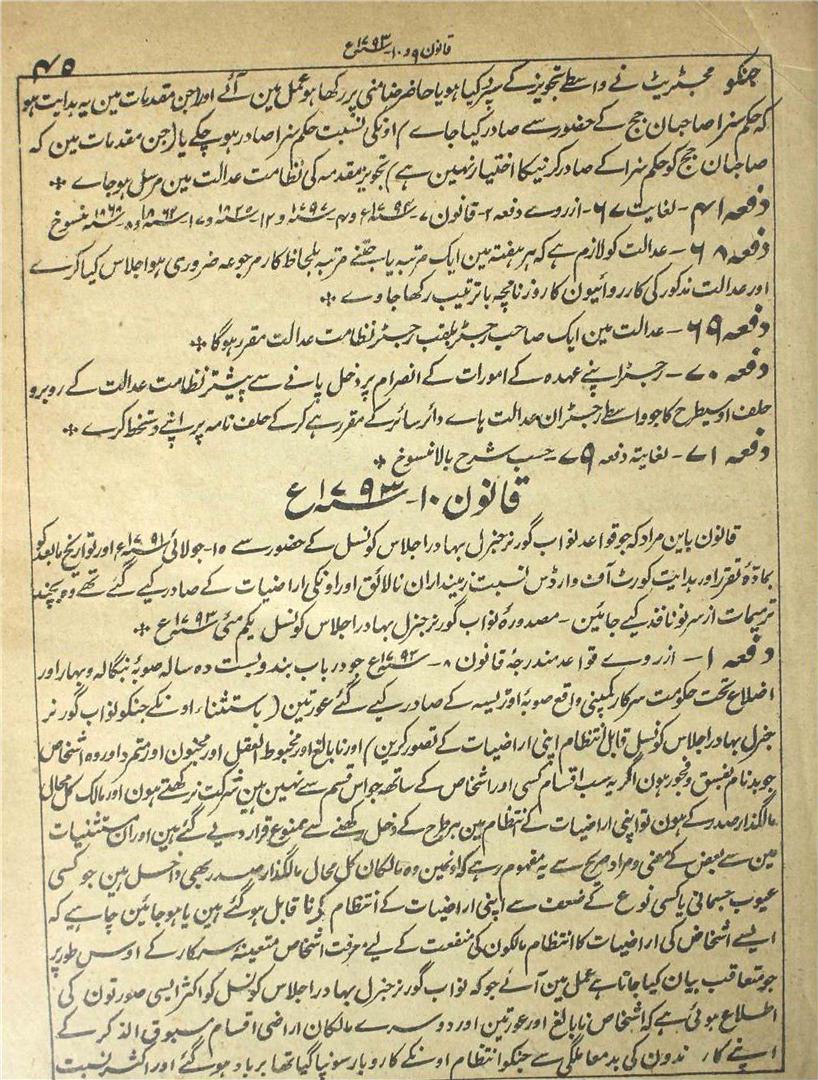 قانون ۹ و ۱۰ سنہ ۱۷۹۳ع
۴۵
جنکو مجسٹریٹ نے واسطے تجویز کے سپرد کیا ہو یا حاضر ضامنی پر رکھا ہو عمل مین آئے اور جن مقدمات مین یہ ہدایت ہو
کہ حکم سزا صاحبان جج کے حضور سے صادر کیا جاے (اونکی نسبت حکم سزا صادر ہو چکے یا (جن مقدمات مین کہ
صاحبان جج کو حکم سزا کے صادر کرنیکا اختیار نہین ہے) تجویز مقدمہ کی نظامت عدالت مین مرسل ہو جاے *
دفعہ ۴۱ - لغایت ۶۷ - ازروے دفعہ ۲ - قانون ۷ سنہ ۱۷۹۴ع و ۴ سنہ ۱۷۹۷ و ۱۲ سنہ ۱۸۲۵ و ۱۷ سنہ ۱۸۶۲ و ۸ سنہ ۱۸۶۸ منسوخ
دفعہ ۶۸ - عدالت کو لازم ہے کہ ہر ہفتہ مین ایک مرتبہ یا جتنے مرتبہ بلحاظ کار مرجوعہ ضروری ہو اجلاس کیا کرے
اور عدالت مذکور کی کارروائیون کا روزنامچہ باترتیب رکھا جاوے *
دفعہ ۶۹ - عدالت مین ایک صاحب رجسٹر بلقب رجسٹر نظامت عدالت مقرر ہوگا *
دفعہ ۷۰ - رجسٹر اپنے عہدہ کے امورات کے انصرام پر دخل پانے سے پیشتر نظامت عدالت کے روبرو
حلف اوسیطرح کا جو واسطے رجسٹران عدالت ہاے دائر سائر کے مقرر ہے کرکے حلف نامہ پر اپنے دستخط کرے *
دفعہ ۷۱ - لغایتہ دفعہ ۷۹ - حسب شرح بالا منسوخ *
قانون ۱۰ - سنہ ۱۷۹۳ع
قانون باین مراد کہ جو قواعد نواب گورنر جنرل بہادر اجلاس کونسل کے حضور سے ۱۵ - جولائی سنہ ۱۷۹۱ع اور تواریخ مابعد کو
بمادۂ تقرر اور ہدایت کورٹ آف وارڈس نسبت زمینداران نالائق اور اونکی اراضیات کے صادر کیے گئے تھے وہ بچند
ترمیمات از سر نو نافذ کیے جائین - مصدورہ نواب گورنر جنرل بہادر اجلاس کونسل یکم مئی سنہ ۱۷۹۳ع *
دفعہ ۱ - ازروے قواعد مندرجہ قانون ۸ - سنہ ۱۷۹۳ع جو درباب بندوبست دہ سالہ صوبہ بنگالہ و بہار اور
اضلاع تحت حکومت سرکار کمپنی واقع صوبہ اوڑیسہ کے صادر کیے گئے عورتین (باستثناء اونکے جنکو نواب گورنر
جنرل بہادر اجلاس کونسل قابل انتظام اپنی اراضیات کے تصور کرین) اور نابالغ اور مخبوط العقل اور مجنون اور متمرد اور وہ اشخاص
جو بدنام بفسق و فجور ہون اگر یہ سب اقسام کسی اور اشخاص کے ساتھ جو اس قسم سے نہین ہین شرکت نرکھتے ہون اور مالک کل محال
مالگذار صدر کے ہون تو اپنی اراضیات کے انتظام مین ہر طرح کے دخل رکھنے سے ممنوع قرار دیے گئے ہین اور ان مستثنیات
مین سے بعض کے معنی و مراد صریح سے یہ مفہوم رہے کہ اونمین وہ مالکان کل محال مالگذار صدر بھی داخل ہین جو کسی
عیوب جسمانی یا کسی نوع کے ضعف سے اپنی اراضیات کے انتظام کرنے کے ناقابل ہو گئے ہین یا ہو جائین چاہیے کہ
ایسے اشخاص کی اراضیات کا انتظام مالکون کی منفعت کے لیے معرفت اشخاص متعینہ سرکار کے اوس طور پر
جو متعاقب بیان کیا جاتا ہے عمل مین آئے جو کہ نواب گورنر جنرل بہادر اجلاس کونسل کو اکثر ایسی صورتون کی
اطلاع ہوئی ہے کہ اشخاص نابالغ اور عورتین اور دوسرے مالکان اراضی اقسام مسبوق الذکر کے
اپنے کارندون کی بدمعاملگی سے جنکو انتظام اونکے کاروبار سونپا گیا تھا برباد ہو گئے اور اکثر نسبت